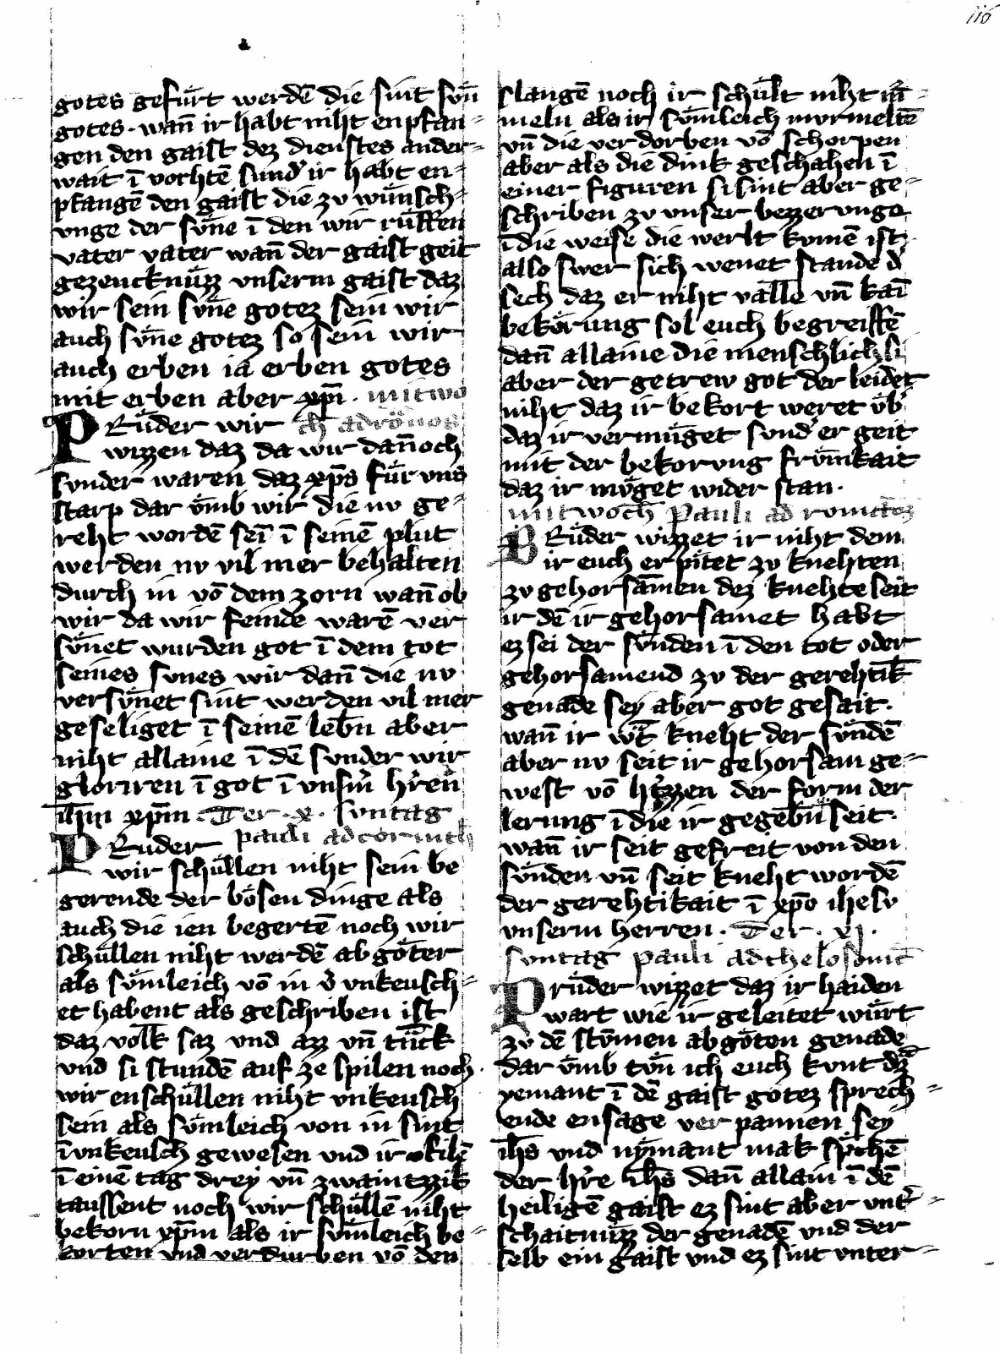 116
gotes gefuͤrt werdē die sint suͤn
gotes · wan̄ ir habt niht enpfan=
gen den gaist dez dienstes ander=
wait ī vorhtē sund' ir habt en=
pfangē den gaist die zv wuͤnsch=
vnge der suͤne ī den wir ruͤffen
vater vater wan̄ der gaist geit
gezeucknuͤzz vnserm gaist daz
wir sein suͤne gotez sein wir
auch suͤne gotez so sein wir
auch erben ia erben gotes
mit erben aber xp̄i · mitwo
PRuͤder wir ch ad romaͤos
wizzen daz da wir dan̄och
sunder waren daz xp̄s fuͤr vns
starp dar vͤmb wir die nv ge=
reht wordē sei ī seinē plut
werden nv vil mer behalten
durch in vō dem zorn wan̄ ob
wir da wir feinde warē ver
suͤnet wurden got ī dem tot
seines sunes wir dan̄ die nv
versuͤnet sint werden vil mer
geseliget ī seinē leb̄n aber
niht allaine ī dē sunder wir
gloriren ī got ī vns'm h'ren
ih̄m xp̄m · Der · x · suntag
PRuder pauli ad corinth
wir schuͤllen niht sein be
gerende der boͤsen dinge als
auch die ien begertē noch wir
schuͤllen niht werdē abgoͤter
als suͤmleich vō in v̄ vnkeusch=
et habent als geschriben ist
daz volk saz vnd azz vn̄ track
vnd si stundē auf ze spilen noch
wir enschuͤllen niht vnkeusch
sein als suͤmleich von in sint
ī vnkeusch gewesen vnd ir vilē
ī einē tag drey vn̄ zwaintzzik
taussent noch wir schuͤllē niht
bekorn xp̄m als ir suͤmleich be=
korten vnd verdurben vō den
slangē noch ir schuͤlt niht m̄=
meln als ir suͤmleich murmeltē
vn̄ die verdorben vō schorpen
aber als die dink geschahen ī
einer figuren si sint aber ge=
schriben zv vnser bezzervnge
ī die weise die werlt kumē ist
also swer sich wenet stande d'
sech daz er niht valle vn̄ kai
bekoͤrung sol euch begreiffē
dan̄ allaine die menschlich si
aber der getrew got der leidet
niht daz ir bekort weret vͤb'
daz ir vermuͤget sund' er geit
mit der bekorvng fruͤmkait
daz ir muͤget wider stan ·
mitwoch Pauli ad romaōs
BRuͤder wizzet ir niht dem
ir euch erpitet zv knehten
zv gehorsamen dez knehte seit
ir dē ir gehorsamet habt
ez sei der suͤnden ī den tot oder
gehorsamend zv der gerehtik̄
genade sey aber got gesait ·
wan̄ ir w't kneht der suͤndē
aber nv seit ir gehorsam ge=
west vō h'zzen der form der
lerung ī die ir gegeb̄n seit ·
wan̄ ir seit gefreit von den
suͤnden vn̄ seit kneht wordē
der gerehtikait ī xp̄o ihesv
vnserm herren · Der · xi ·
suntag pauli ad thesolonic̄
PRuͤder wizzet daz ir haiden
wart wie ir geleitet wuͤrt
zv dē stumen abgoͤten genade
dar vͤmb tuͤn ich euch kunt dz
yemant ī dē gaist gotez sprech=
ende ensage verpannen sey
ih̄s vnd nymant mak sp'chē
der h're ih̄s dan̄ allain ī dē
heiligē gaist ez sint aber vnt'=
schaitnuͤzz der genadē vnd der
selb ein gaist vnd ez sint vnter=